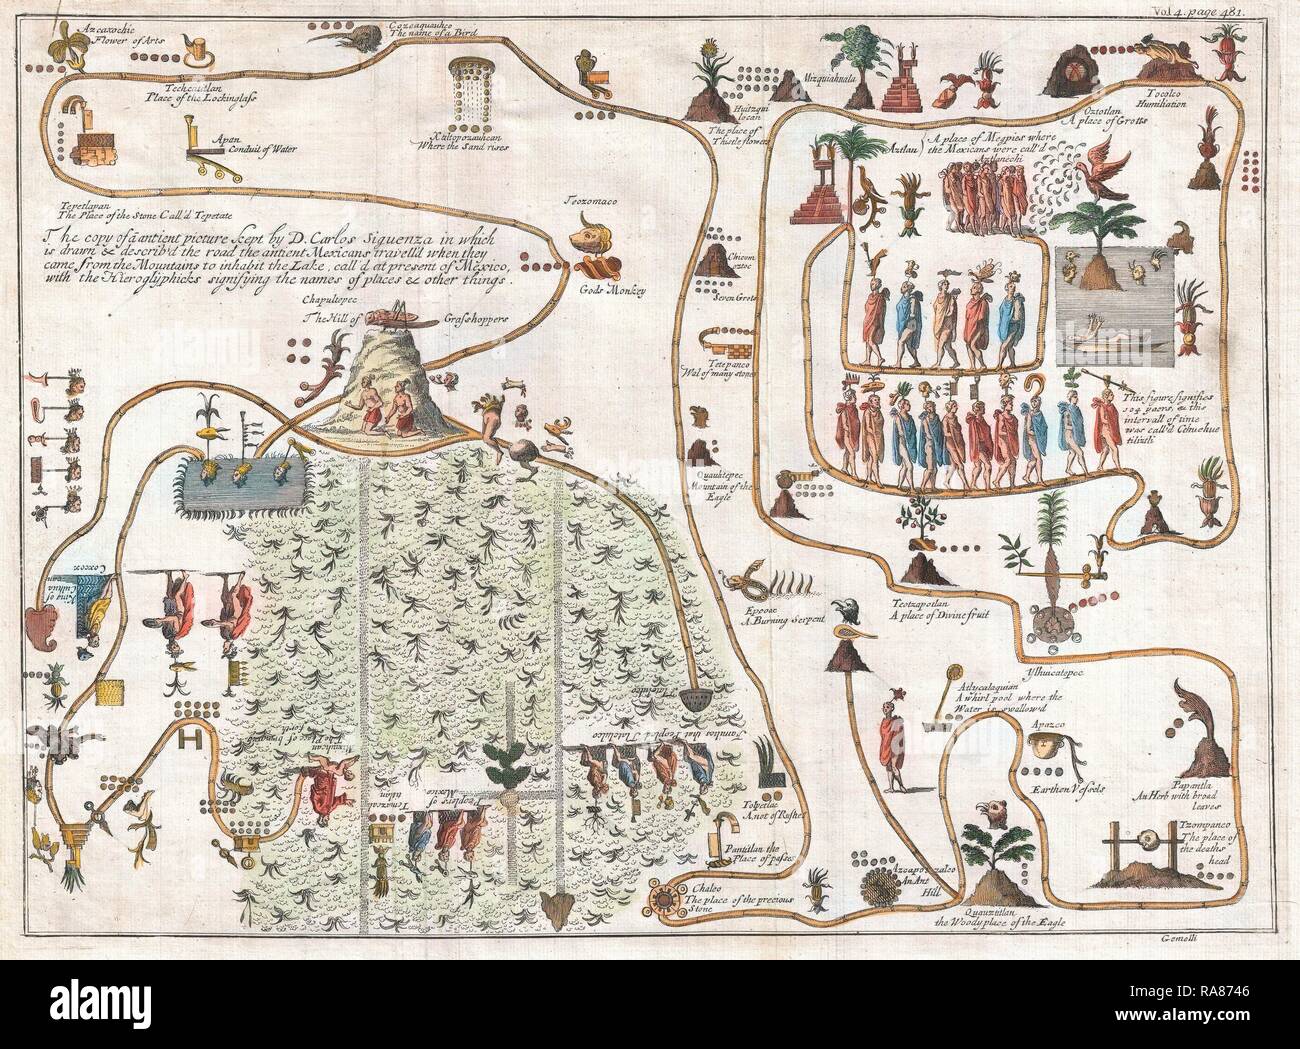 Vol 4. page 481.
Azcaxochic
Flower of Arts
Cozcaquauhco
The name of a Bird
Techcatitlan
Place of the Lockinglass
Apan
Conduit of Water
Xaltepozauhcan
Where the Sand rises
Tepetlapan
The Place of the Stone Call'd Tepetate
The copy of á antient picture kept by D. Carlos Siguenza in which
is drawn & describ'd the road the antient Mexicans travell'd when they
came from the Mountains to inhabit the Lake, call'd at present of Mexico,
with the Hieroglyphicks signifying the names of places & other things.
Teozomaco
Gods Monkey
Chapultepec
The Hill of Grasshoppers
Huitzqui
locan
The place of
Thistle flower
Mizquiahuala
Oztotlan
A place of Grotts
Tocolco
Humiliation
Aztlan) (A place of Megpies where
the Mexicans were call'd
Aztlanechi
Chicom
oztoc
Seven Grots
Tetepanco
Wal of many stones
Quauhtepec
Mountain of the
Eagle
This figure signifies
104 years, & this
intervall of time
was call'd Cihuehue
tiliztli
Epcoac
A Burning Serpent
Teotzapotlan
A place of Divine fruit
Ylhuicatepec
Atlycalaquian
A whirl pool where the
Water is swallow'd
Apazco
Earthen Vessels
Papantla
An Herb with broad
leaves
Tzompanco
The place of
the deaths
head
Tolpetlac
A not of Rushes
Pantitlan the
Place of passes
Chalco
The place of the precious
Stone
Azcapotzalco
An Ant
Hill
Quauzitlan
the Woody place of the Eagle
Coxcox
King of
Culhua
can
Tlatelulco
Families that Peopled Tlatelulco
Peoplers of
Mexico
Gemelli
alamy
Image ID: RA8746
www.alamy.com